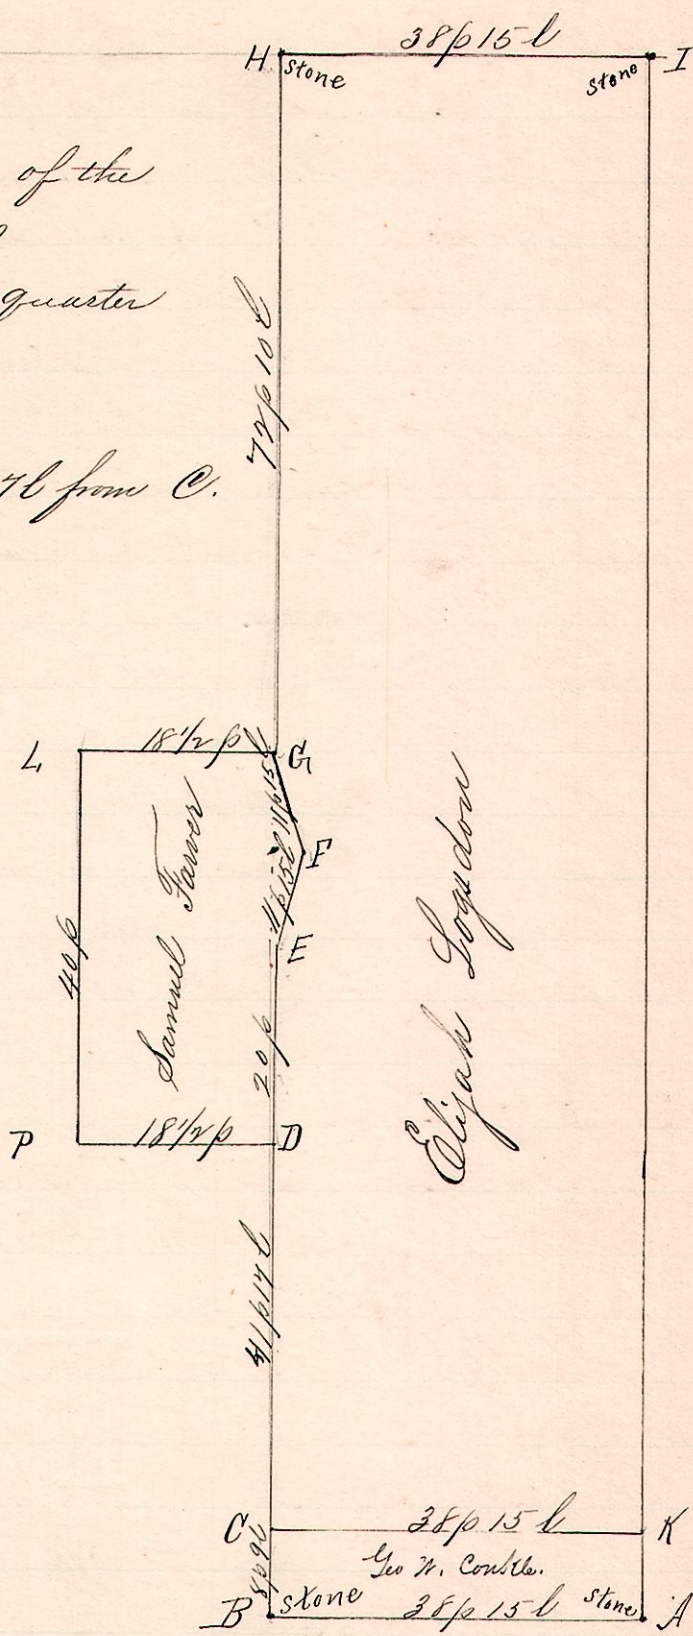 38p 15l
H stone
stone I
of the
quarter
72p 10l
7l from C.
L 18 1/2 p G
11p 15l
F
11p 15l
E
Samuel Farver
40p
20p
Elijah Logsdon
P 18 1/2 p D
41p 17l
C 38p 15l K
8p 9l
Geo W. Conkle.
B stone 38p 15l stone A